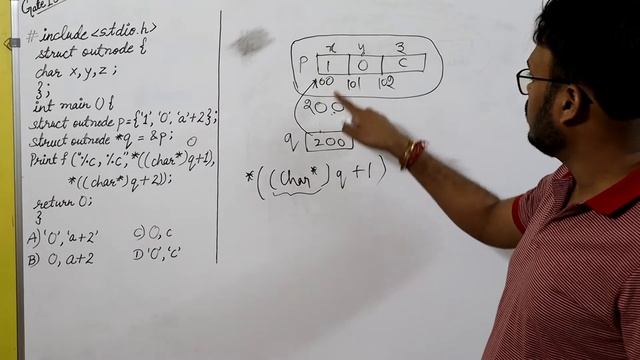 Gate 20
# include <stdio.h>
struct outnode {
char x, y, z ;
};
int main () {
struct outnode p = {'1', '0', 'a'+2};
struct outnode *q = &p;
0
Print f ("%c, %c", *((char*)q+1),
*((char*)q+2));
return 0;
}
A) '0', 'a+2'
C) 0, c
B) 0, a+2
D '0', 'c'
x y 3
P 1 0 C
100 101 102
200
q 200
*((char*) q+1)